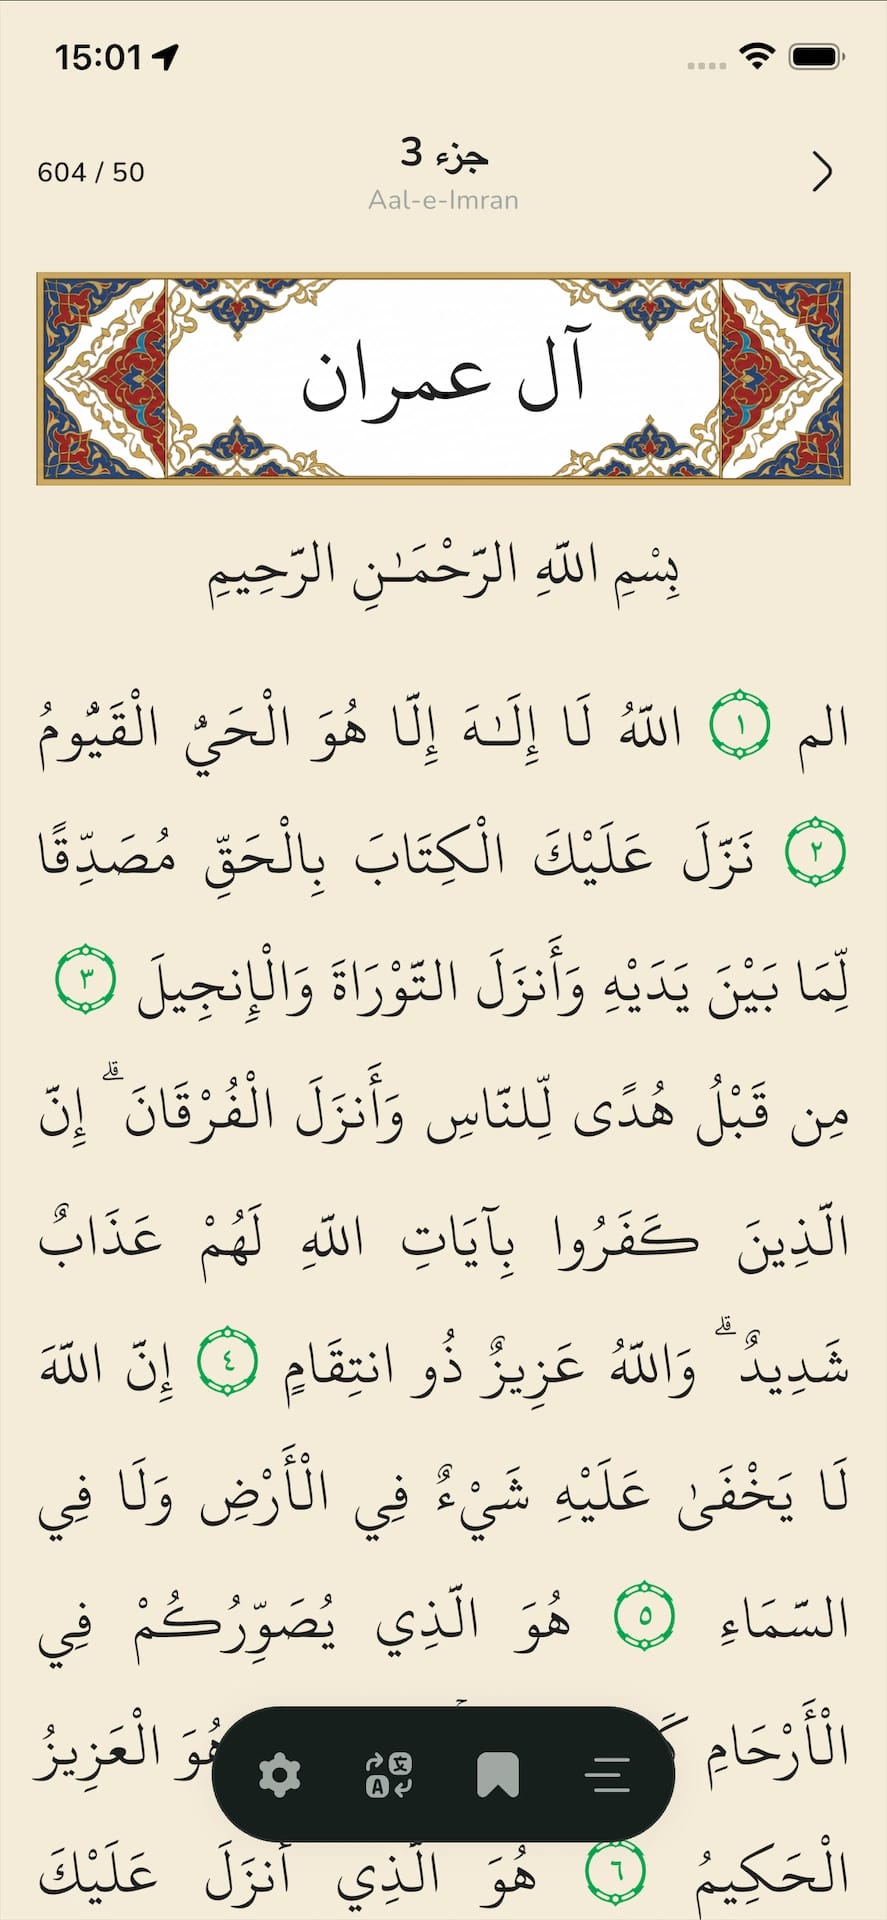 15:01
604 / 50
جزء 3
Aal-e-Imran
آل عمران
بِسْمِ اللَّهِ الرَّحْمَـٰنِ الرَّحِيمِ
الم ١ اللَّهُ لَا إِلَـٰهَ إِلَّا هُوَ الْحَيُّ الْقَيُّومُ
٢ نَزَّلَ عَلَيْكَ الْكِتَابَ بِالْحَقِّ مُصَدِّقًا
لِّمَا بَيْنَ يَدَيْهِ وَأَنزَلَ التَّوْرَاةَ وَالْإِنجِيلَ ٣
مِن قَبْلُ هُدًى لِّلنَّاسِ وَأَنزَلَ الْفُرْقَانَ ۗ إِنَّ
الَّذِينَ كَفَرُوا بِآيَاتِ اللَّهِ لَهُمْ عَذَابٌ
شَدِيدٌ ۗ وَاللَّهُ عَزِيزٌ ذُو انتِقَامٍ ٤ إِنَّ اللَّهَ
لَا يَخْفَىٰ عَلَيْهِ شَيْءٌ فِي الْأَرْضِ وَلَا فِي
السَّمَاءِ ٥ هُوَ الَّذِي يُصَوِّرُكُمْ فِي
الْأَرْحَامِ هُوَ الْعَزِيزُ
الْحَكِيمُ ٦ هُوَ الَّذِي أَنزَلَ عَلَيْكَ